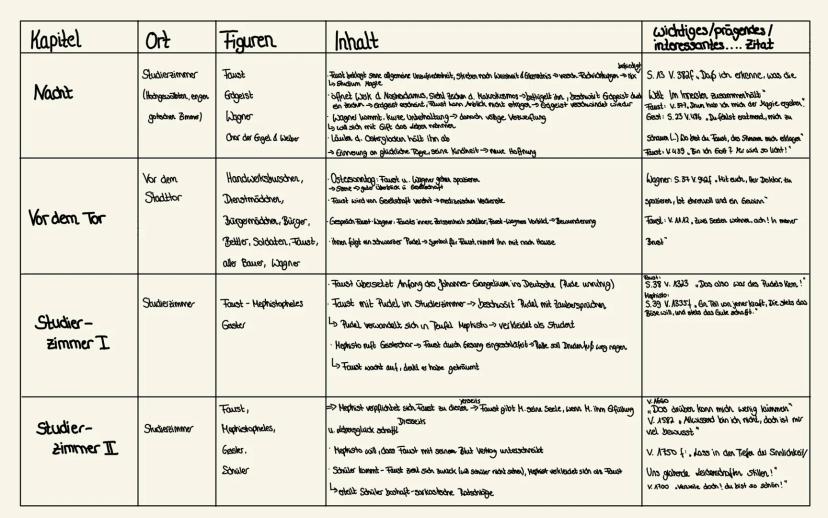 Kapitel
Ort
Figuren
Inhalt
wichtiges/prägendes/
interessantes.... Zitat
Nacht
Studierzimmer
(Hochgewölbten, engen
gotischen Zimmer)
Faust
Erdgeist
Wagner
Chor der Engel & Weiber
befriedigt
· Faust beklagt seine allgemeine Unzufriedenheit, Streben nach Weisheit & Erkenntnis → versch. Fachrichtungen → nix
↳ Studium Magie
· öffnet Werk d. Nostradamus, sieht Zeichen d. Makrokosmos → beflügelt ihn, beschwört Erdgeist durch
ein Zeichen → Erdgeist erscheint, Faust kann Anblick nicht ertragen → Erdgeist verschwindet wieder
· Wagner kommt, kurze Unterhaltung → danach völlige Verzweiflung
↳ will sich mit Gift das Leben nehmen
· Läuten d. Osterglocken hält ihn ab
→ Erinnerung an glückliche Tage, seine Kindheit → neue Hoffnung
S. 13 V. 382f „Daß ich erkenne, was die
Welt Im Innersten zusammenhält"
Faust: V. 377 „Drum hab ich mich der Magie ergeben"
Geist: S. 23 V. 486 „Du flehst eratmend, mich zu
schauen (...) Da bist du Faust, des Stimme mich erklagen"
Faust: V. 439 „Bin ich Gott? Mir wird so licht!"
Vor dem Tor
Vor dem
Stadttor
Handwerksburschen,
Dienstmädchen,
Bürgermädchen, Bürger,
Bettler, Soldaten, Faust,
alter Bauer, Wagner
· Ostersonntag: Faust u. Wagner gehen spazieren
→ Szene → guter Überblick ü. Gesellschaft
· Faust wird von Gesellschaft verehrt → medizinischen Verdienste
· Gespräch Faust-Wagner: Fausts innere Zerrissenheit sichtbar, Faust-Wagners Vorbild → Bewunderung
· ihnen folgt ein schwarzer Pudel → Symbol für Faust, nimmt ihn mit nach Hause
Wagner: S. 37 V. 942f „Mit euch, Herr Doktor, zu
spazieren, Ist ehrenvoll und ein Gewinn"
Faust: V. 1112 „Zwei Seelen wohnen, ach! In meiner
Brust"
Studier-
zimmer I
Studierzimmer
Faust - Mephistopheles
Geister
· Faust übersetzt Anfang des Johannes-Evangelium ins Deutsche (Pudel unruhig)
· Faust mit Pudel im Studierzimmer → beschwört Pudel mit Zaubersprüchen
↳ Pudel verwandelt sich in Teufel Mephisto → verkleidet als Student
· Mephisto ruft Geisterchor → Faust durch Gesang eingeschläfert → Ratte soll Drudenfuß weg nagen
↳ Faust wacht auf, denkt er habe geträumt
Faust:
S. 38 V. 1323 „Das also war des Pudels Kern!"
Mephisto:
S. 39 V. 1335f „Ein Teil von jener Kraft, Die stets das
Böse will, und stets das Gute schafft."
Studier-
zimmer II
Studierzimmer
Faust,
Mephistopheles,
Geister,
Schüler
Jenseits
⇒ Mephist verpflichtet sich Faust zu dienen → Faust gibt M. seine Seele, wenn M. ihm Erfüllung
Diesseits
u. Lebensglück schafft
· Mephisto will, dass Faust mit seinem Blut Vertrag unterschreibt
· Schüler kommt - Faust zieht sich zurück (will Schüler nicht sehen), Mephist verkleidet sich als Faust
↳ erteilt Schüler boshaft-sarkastische Ratschläge
V. 1660
„Das drüben kann mich wenig kümmern"
V. 1582 „Allwissend bin ich nicht, doch ist mir
viel bewusst"
V. 1750 f: „Lass in den Tiefen der Sinnlichkeit/
Uns glühende Leidenschaften stillen!"
V. 1700 „Verweile doch! du bist so schön!"